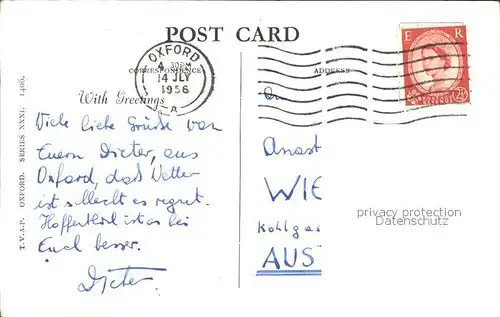 POST CARD
E R
OXFORD
4 30PM
14 JLY
1956
A
CORRESPONDENCE
ADDRESS
With Greetings
Viele liebe Grüße von
Euerm Dieter, aus
Oxford, das Wetter
ist schlecht es regnet.
Hoffentlich ist es bei
Euch besser.
Dieter
An
Anast
WIE
Kohlgas
AUS
POSTAGE REVENUE
2½
T.V.A.P. OXFORD. SERIES XXXI. 1406.
privacy protection
Datenschutz